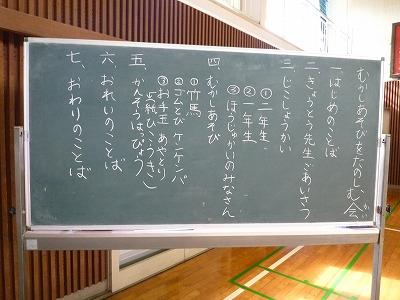 むかしあそびをたのしむ会
かい
一、はじめのことば
二、きょうとう先生ごあいさつ
三、じこしょうかい
①二年生
②一年生
③ほうじゅかいのみなさん
四、むかしあそび
①竹馬
②ゴムとび ケンケンパ
③お手玉 あやとり
(紙ひこうき)
五、かんそうはっぴょう
六、おれいのことば
七、おわりのことば